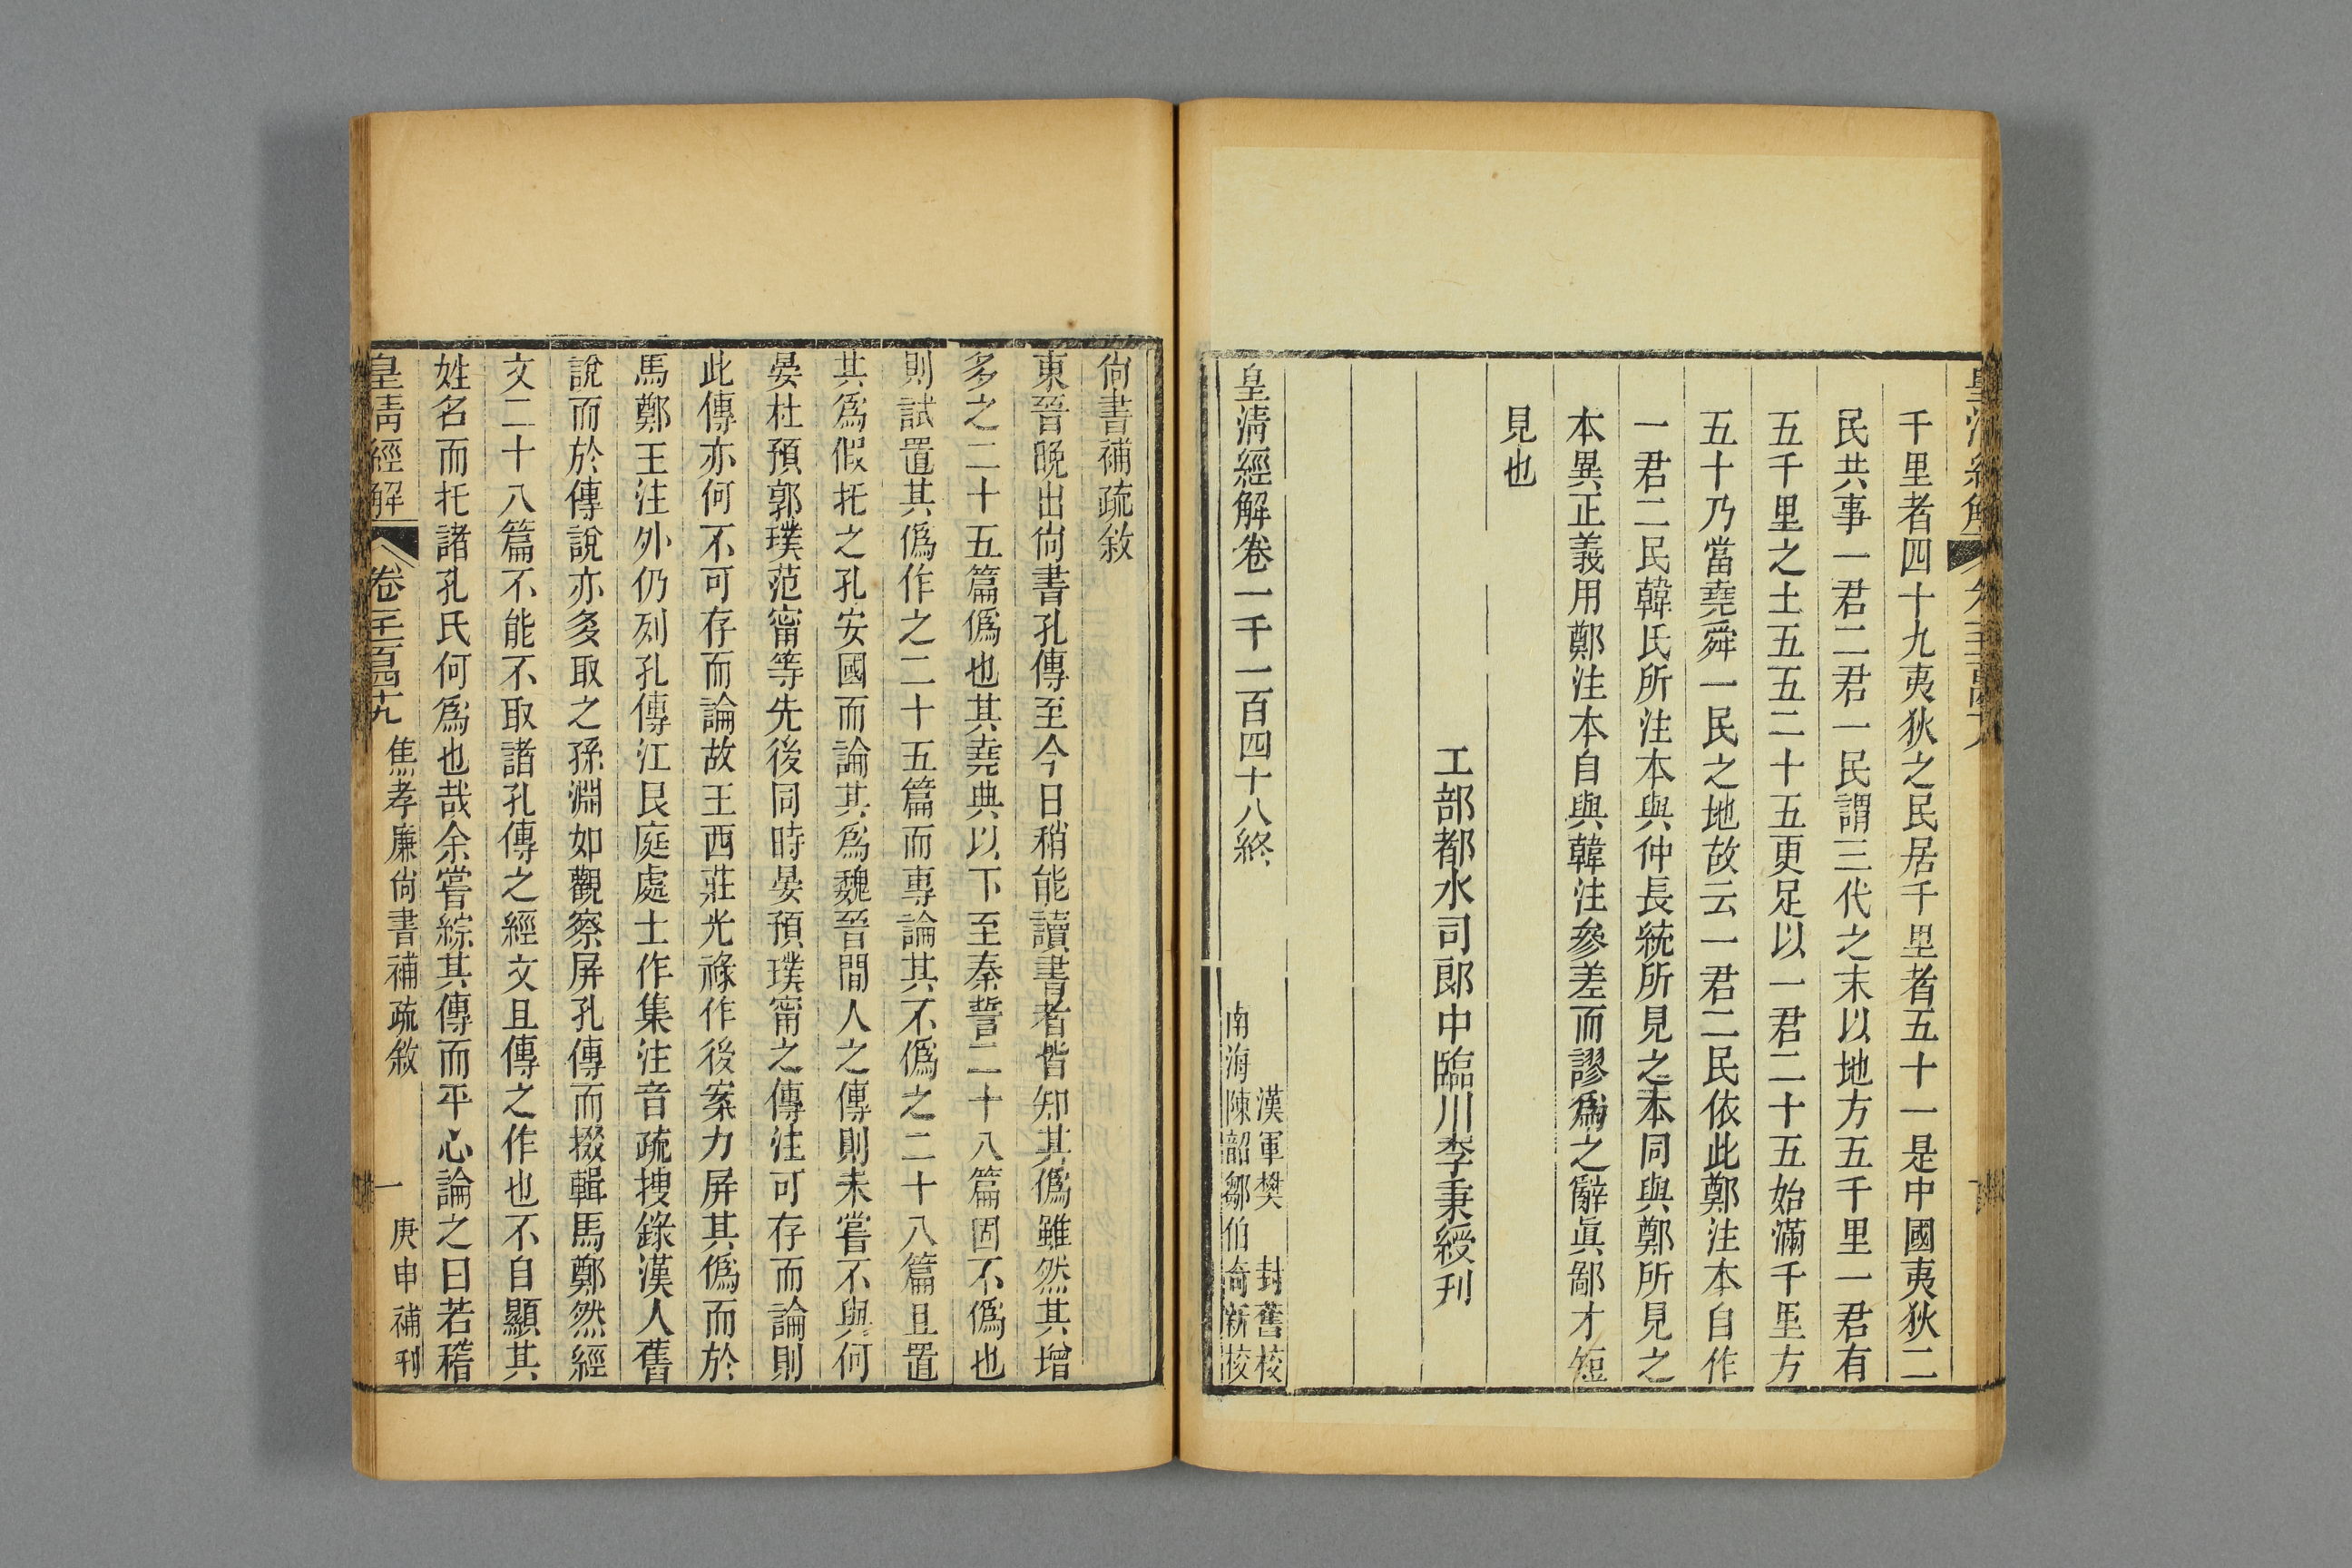 千里者四十九夷狄之民居千里者五十一是中國夷狄二
民共事一君二君一民謂三代之末以地方五千里一君有
五千里之土五五二十五更足以一君二十五始滿千里方
五十乃當堯舜一民之地故云一君二民依此鄭注本自作
一君二民韓氏所注本與仲長統所見之本同與鄭所見之
本異正義用鄭注本自與韓注參差而謬爲之辭眞鄙才短
見也
工部都水司郎中臨川李秉綬刊
皇淸經解卷一千一百四十八終
漢軍樊 封舊校
南海陳韶鄒伯奇新校
尙書補疏敘
東晉晚出尙書孔傳至今日稍能讀書者皆知其僞雖然其增
多之二十五篇僞也其堯典以下至秦誓二十八篇固不僞也
則試置其僞作之二十五篇而專論其不僞之二十八篇且置
其爲假托之孔安國而論其爲魏晉閒人之傳則未嘗不與何
晏杜預郭璞范甯等先後同時晏預璞甯之傳注可存而論則
此傳亦何不可存而論故王西莊光祿作後案力屏其僞而於
馬鄭王注外仍列孔傳江艮庭處士作集注音疏搜錄漢人舊
說而於傳說亦多取之孫淵如觀察屏孔傳而掇輯馬鄭然經
文二十八篇不能不取諸孔傳之經文且傳之作也不自顯其
姓名而托諸孔氏何爲也哉余嘗綜其傳而平心論之曰若稽
皇淸經解 卷一千一百四十九 焦孝廉尙書補疏敘 一 庚申補刊